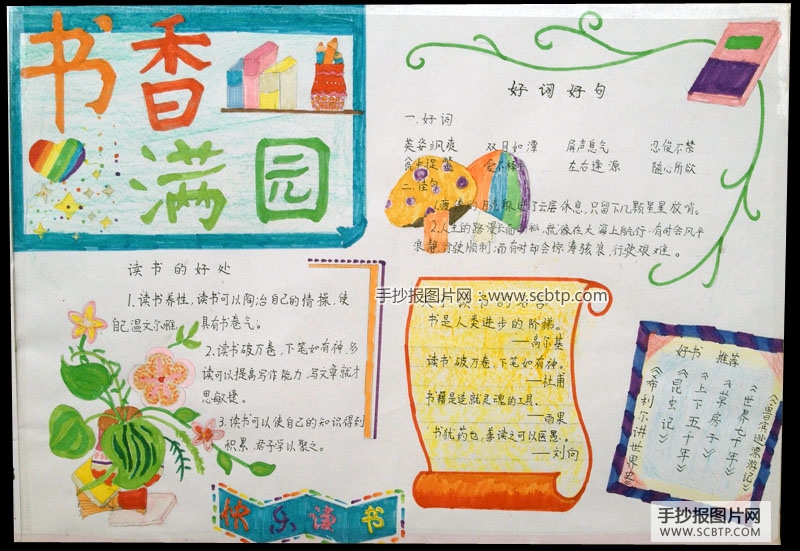 书香
满园
好词好句
一.好词
英姿飒爽 双目如潭 屏声息气 忍俊不禁
左右逢源 随心所欲
二.佳句
了云层休息,只留下几颗星星放哨。
2.人生的路漫长而
海上航行,有时会风平
浪静,行驶顺利;而有时却会惊涛骇浪,行驶艰难。
读书的好处
1.读书养性,读书可以陶冶自己的情操,使
自己温文尔雅,具有书卷气。
2.读书破万卷,下笔如有神,多
读可以提高写作能力,写文章就才
思敏捷。
3.读书可以使自己的知识得到
积累,君子学以聚之。
手抄报图片网 www.scbtp.com
书是人类进步的阶梯。
——高尔基
读书破万卷,下笔如有神。
——杜甫
书籍是造就灵魂的工具。
——雨果
书犹药也,善读之可以医愚。
——刘向
好书 推荐
《鲁滨逊漂游记》
《世界七千年》
《草房子》
《上下五千年》
《昆虫记》
《希利尔讲世界史》
快乐读书
手抄报图片网
WWW.SCBTP.COM